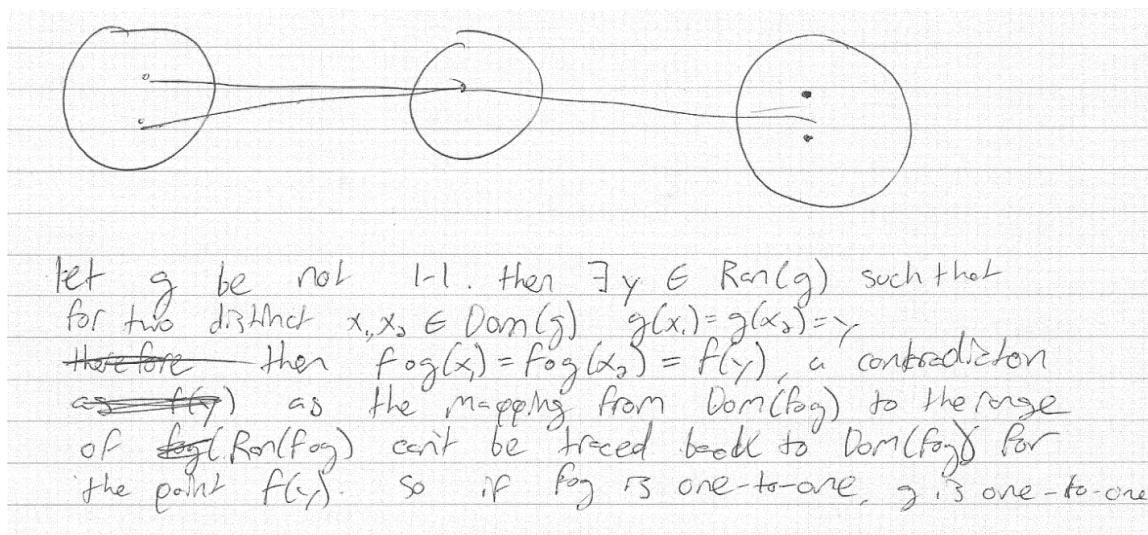 let g be not 1-1. then ∃y ∈ Ran(g) such that
for two distinct x₁,x₂ ∈ Dom(g) g(x₁)=g(x₂)=y
therefore then fog(x₁)=fog(x₂)=f(y), a contradiction
as f(y) as the mapping from Dom(fog) to the range
of fog (Ran(fog) can't be traced back to Dom(fog) for
the point f(y). so if fog is one-to-one, g is one-to-one